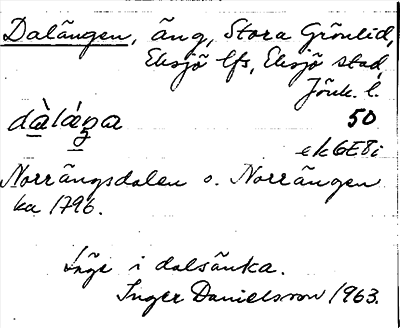 Dalängen, äng, Stora Grönlid,
Eksjö lfs, Eksjö stad,
Jönk. l.
dàláŋa 50
ek6E8i
Norrängsdalen o. Norrängen
ka 1796.
Läge i dalsänka.
Inger Danielsson 1963.